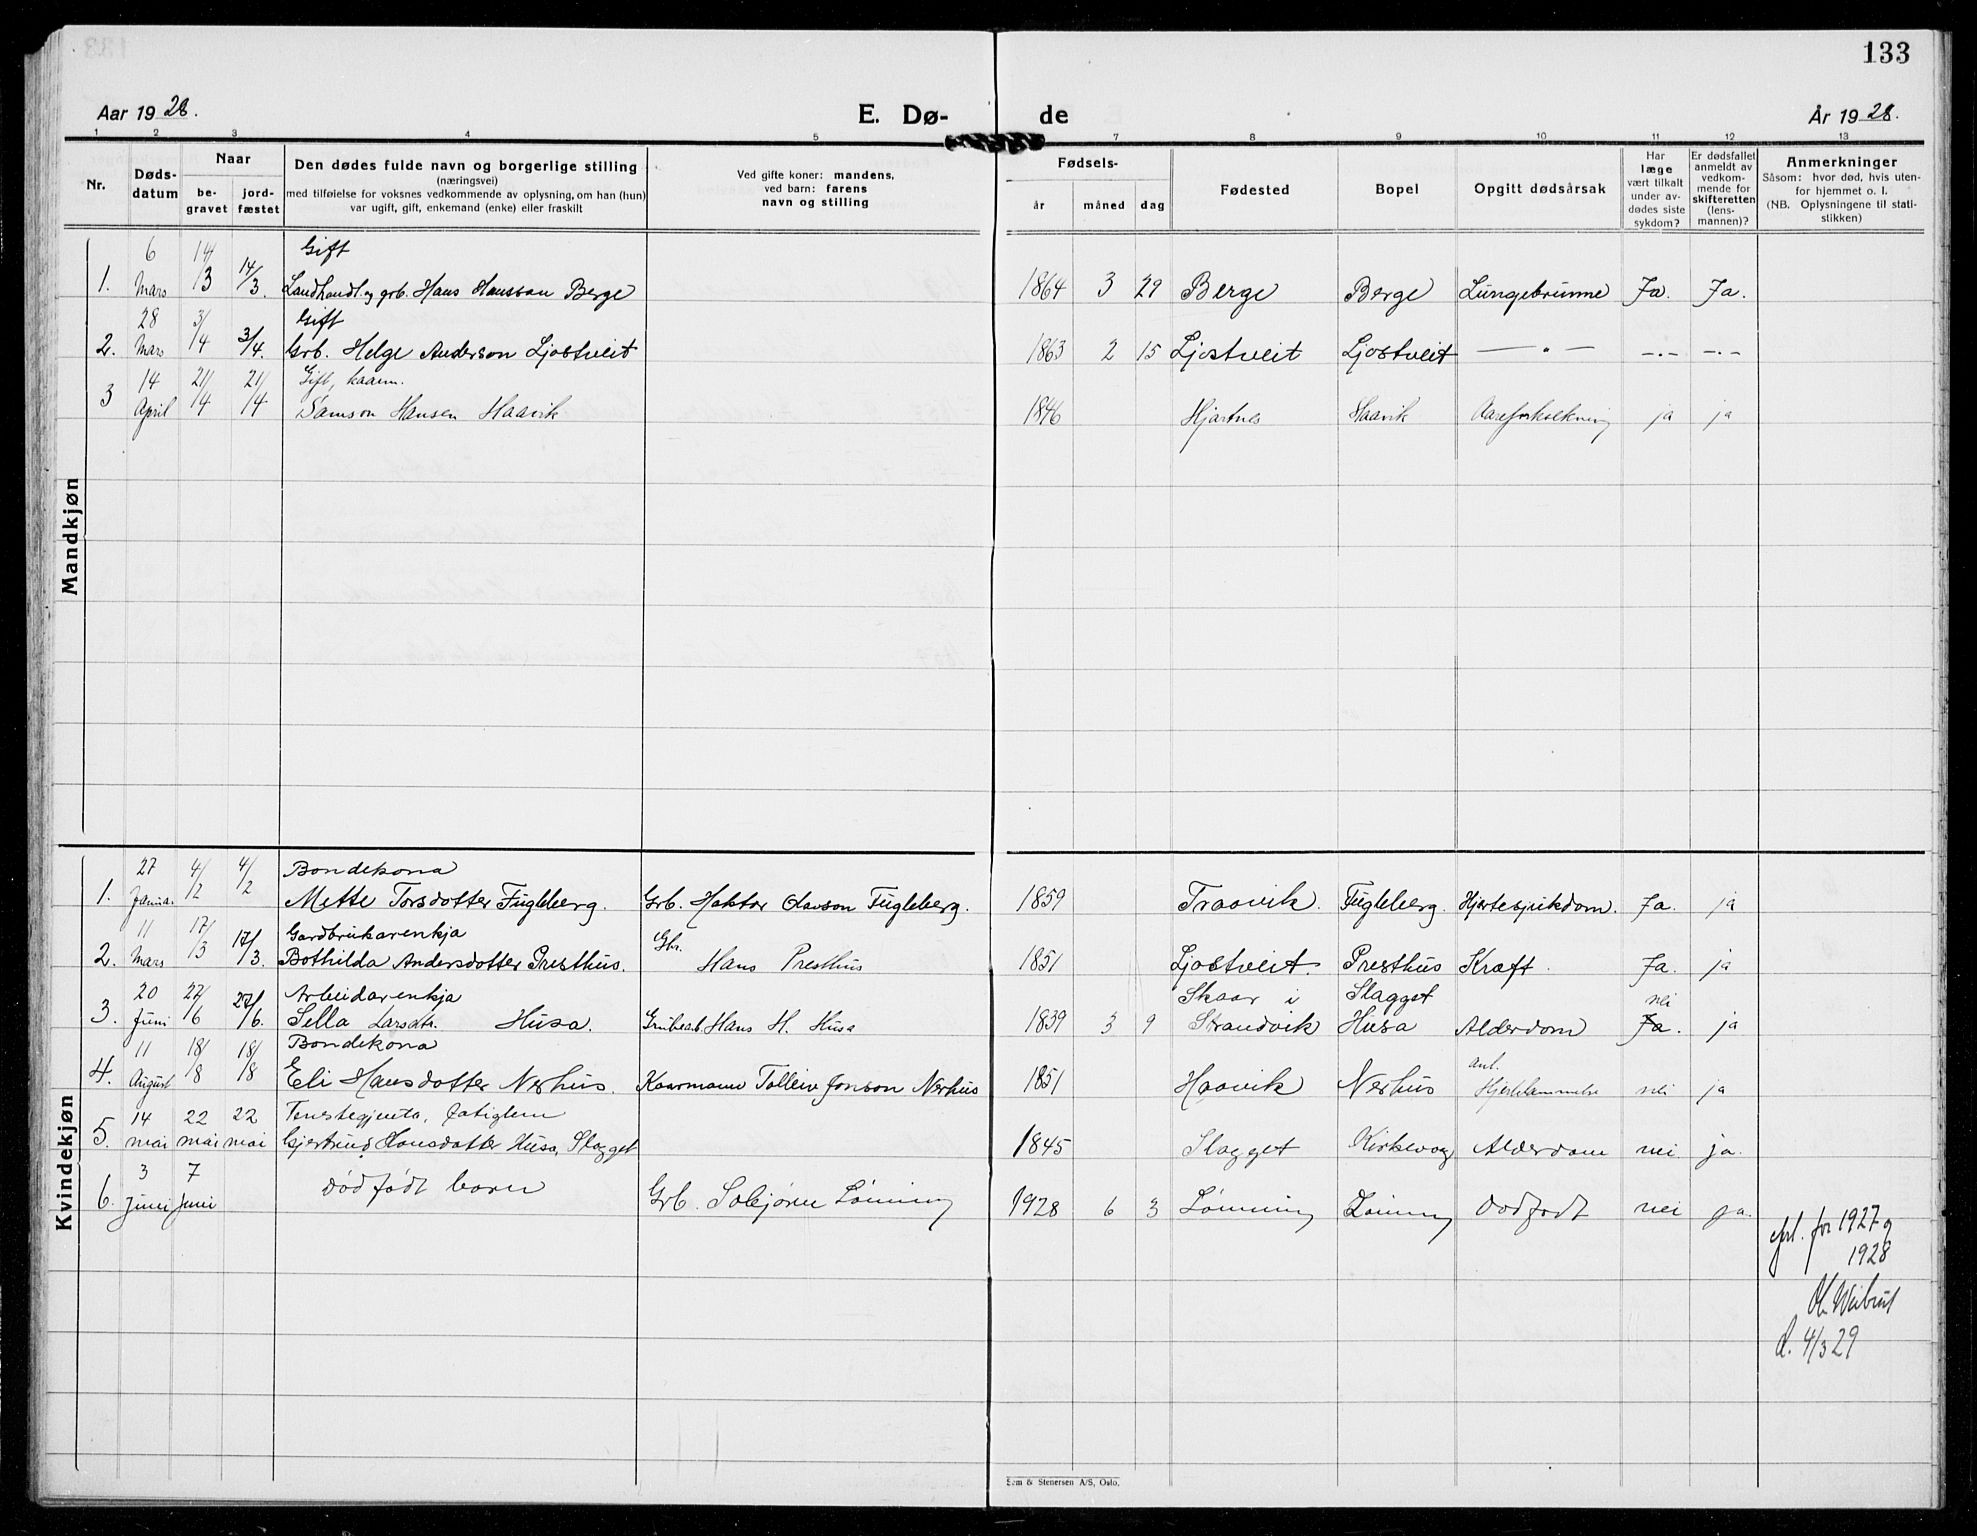 133
Aar 1928.
E. Dø-
de
År 1928.
1 2 3 4 5 7 8 9 10 11 12 13
Nr.
Døds-
datum
Naar
be-
gravet
jord-
fæstet
Den dødes fulde navn og borgerlige stilling
(næringsvei)
med tilføielse for voksnes vedkommende av oplysning, om han (hun)
var ugift, gift, enkemand (enke) eller fraskilt
Ved gifte koner: mandens,
ved barn: farens
navn og stilling
Fødsels-
år måned dag
Fødested
Bopel
Opgitt dødsårsak
Har
læge
vært tilkalt
under av-
dødes siste
sykdom?
Er dødsfallet
anmeldt av
vedkom-
mende for
skifteretten
(lens-
mannen)?
Anmerkninger
Såsom: hvor død, hvis uten-
for hjemmet o. l.
(NB. Oplysningene til stati-
stikken)
Mandkjøn
6 14/ Gift
1. Mars 3 14/3. Landhandl. og grb. Hans Hansson Berge 1864 3 29 Berge Berge Lungebrunne Ja. Ja.
28 3/ Gift
2. Mars /4 3/4. Grb. Helge Anderson Ljostveit 1863 2 15 Ljostveit Ljostveit — " — —"— —"—
14 21/ 21/ Gift, kaarm.
3 April /4 /4 Samson Hansen Haavik 1846 Hjartnes Haavik Aareforkalkning ja ja
Kvindekjøn
27 4/ 4/ Bondekona
1. Januar /2 /2 Mette Torsdotter Fugleberg. Grb. Haktor Olavson Fugleberg. 1859 Traavik. Fugleberg. Hjartesjukdom. Ja. ja
11 17/ Gardbrukarenkja
2. Mars /3 17/3. Bothilda Andersdotter Presthus. Gbr. Hans Presthus 1851 Ljostveit. Presthus Kræft. Ja. ja
20 27/ Arbeidarenkja Skaar i Slagget nei
3. Juni /6 27/6. Sella Larsdtr. Husa. Hans H. Husa 1839 3 9 Strandvik Husa Alderdom Ja. ja
11 18/ 18/ Bondekona ant.
4. August /8 /8 Eli Hansdotter Nerhus. Kaarmann Tolleiv Jonson Nerhus 1851 Haavik Nerhus Hjertelammelse nei ja
14 22 22 Tenestegjenta, fatiglem
5. mai mai mai Gjertrud Hansdotter Husa, Slagget 1845 Slagget Kirkevog Alderdom nei ja.
3 7
6. Juni Juni dødfødt barn Grb. Solbjørn Lønning 1928 6 3 Lønning Lønning dødfødt nei ja.
for 1927 og
1928
d. 4/3 29
Sem & Stenersen A/S, Oslo.